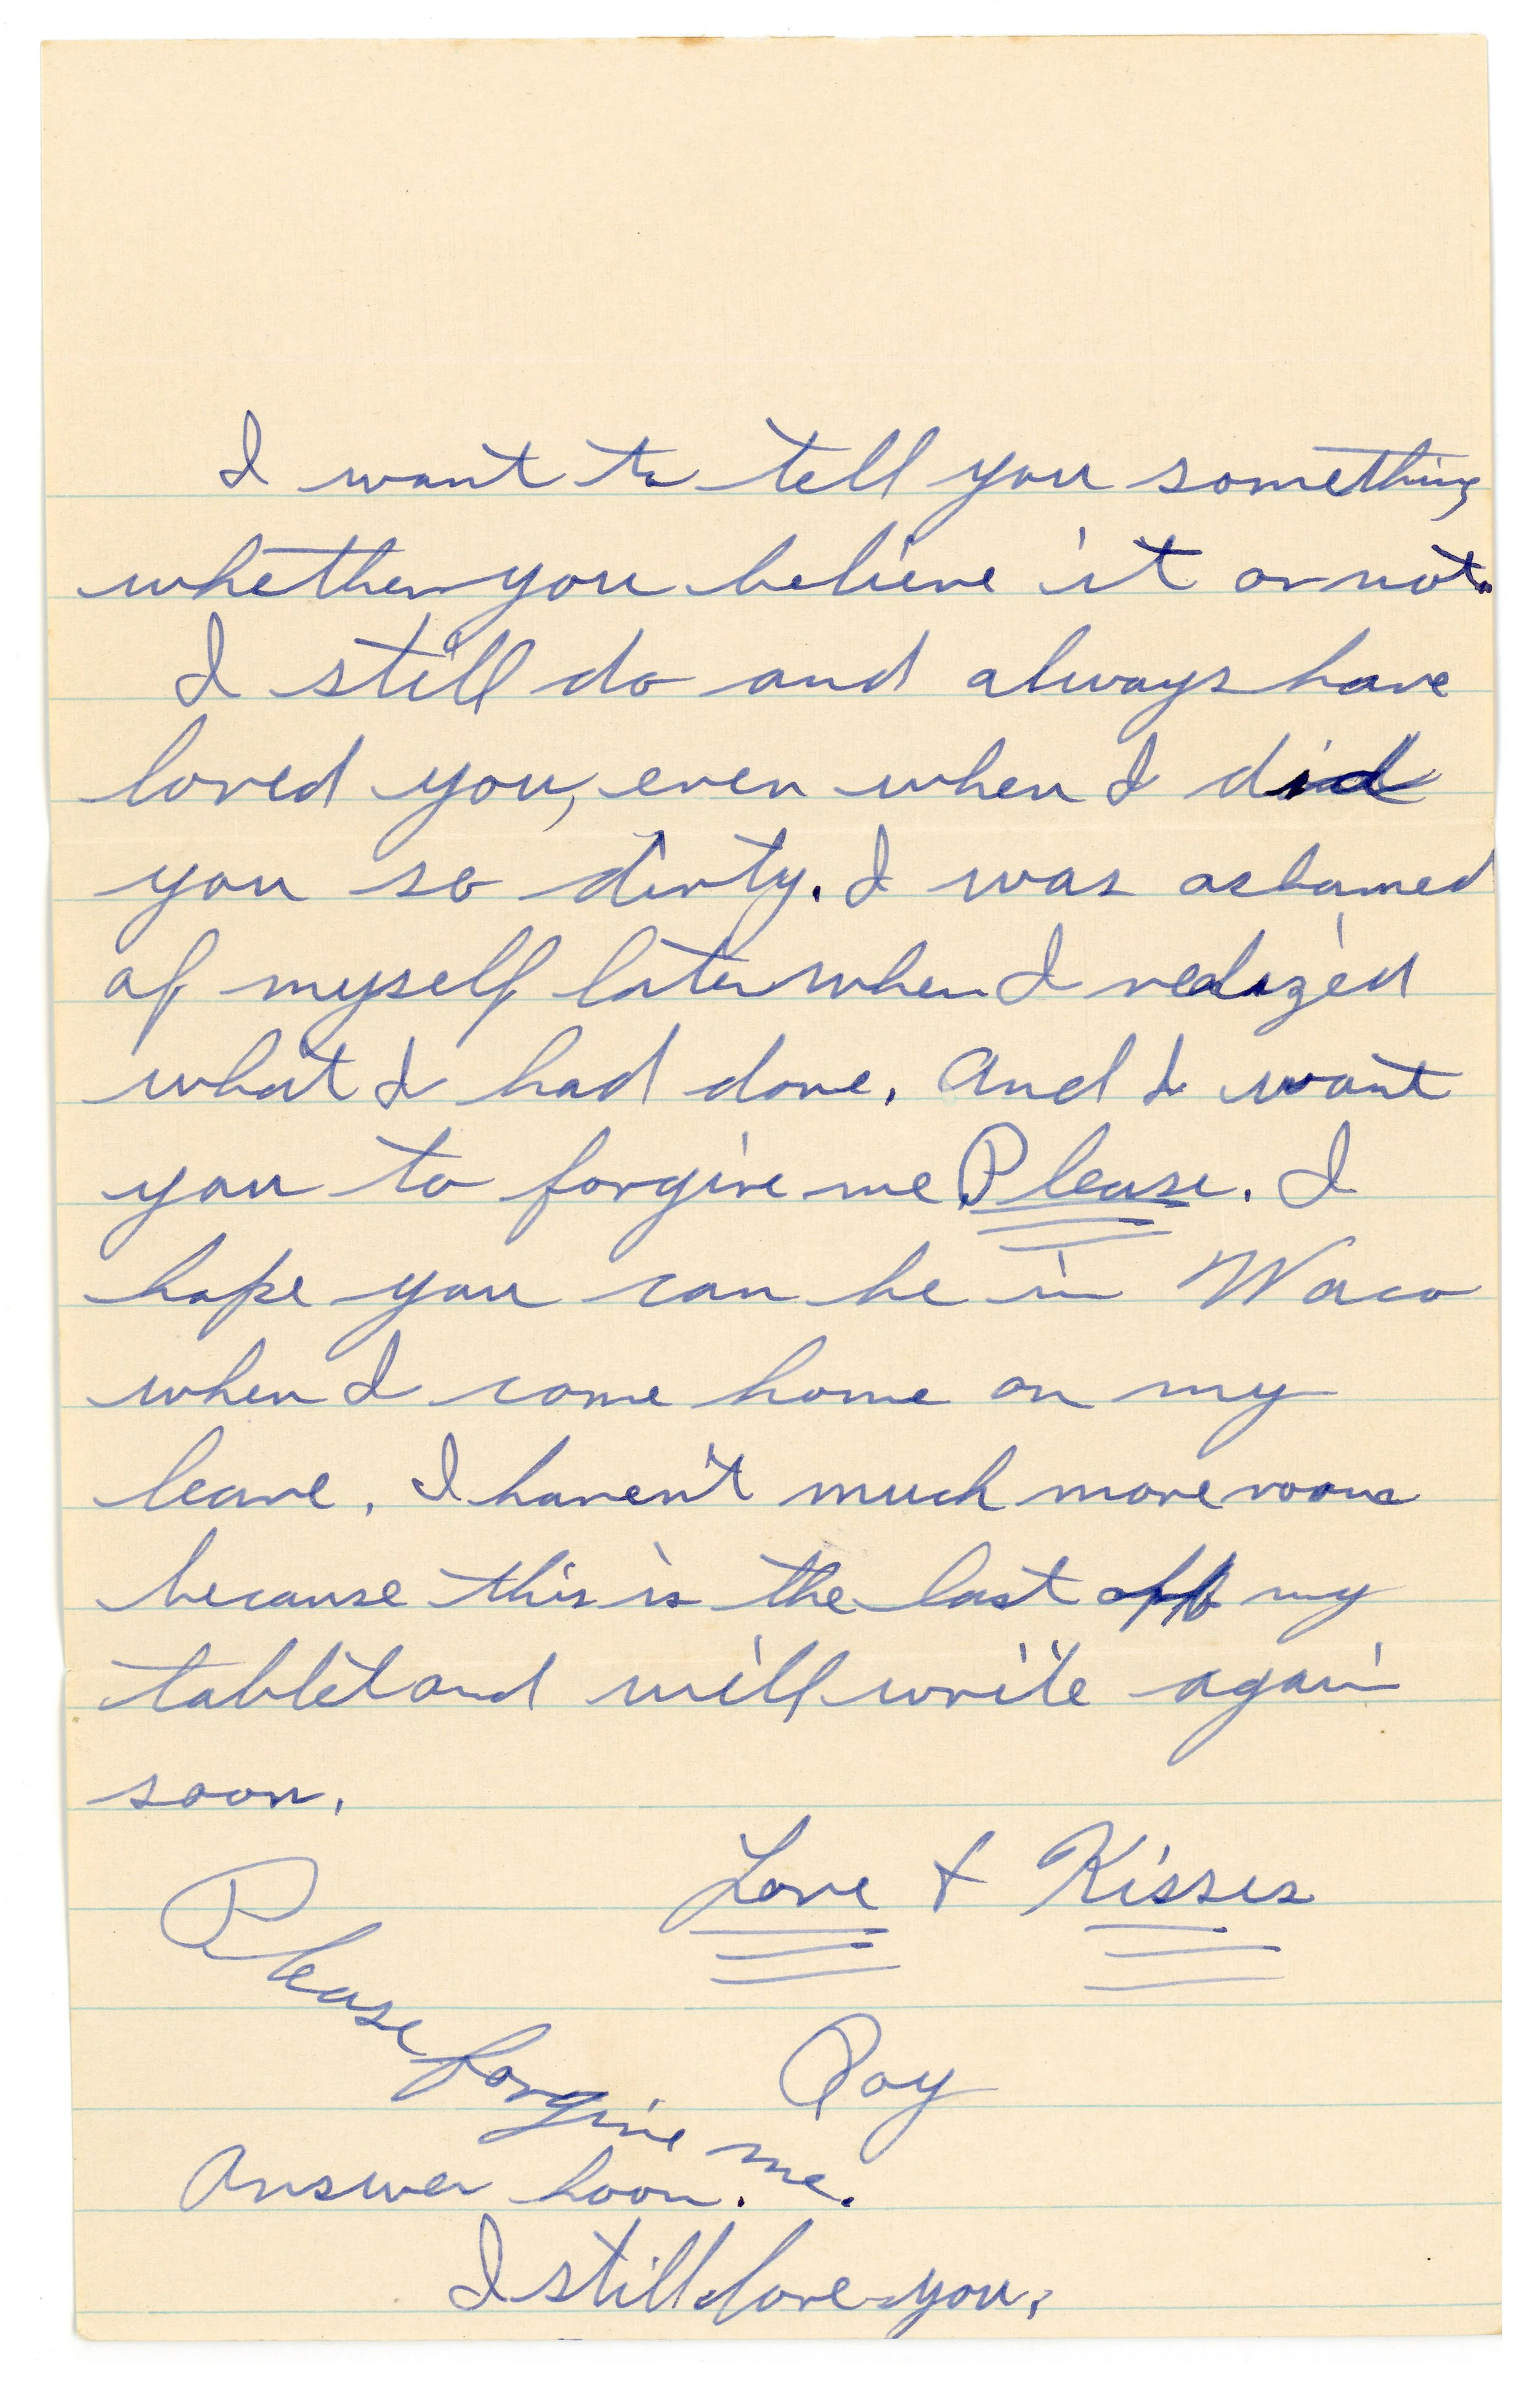 I want to tell you something
whether you believe it or not.
I still do and always have
loved you, even when I did
you so dirty. I was ashamed
of myself later when I realized
what I had done. And I want
you to forgive me Please. I
hope you can be in Waco
when I come home on my
leave. I haven't much more room
because this is the last off my
tablet and will write again
soon.
Love + Kisses
Please forgive me.
Roy
Answer soon.
I still love you.